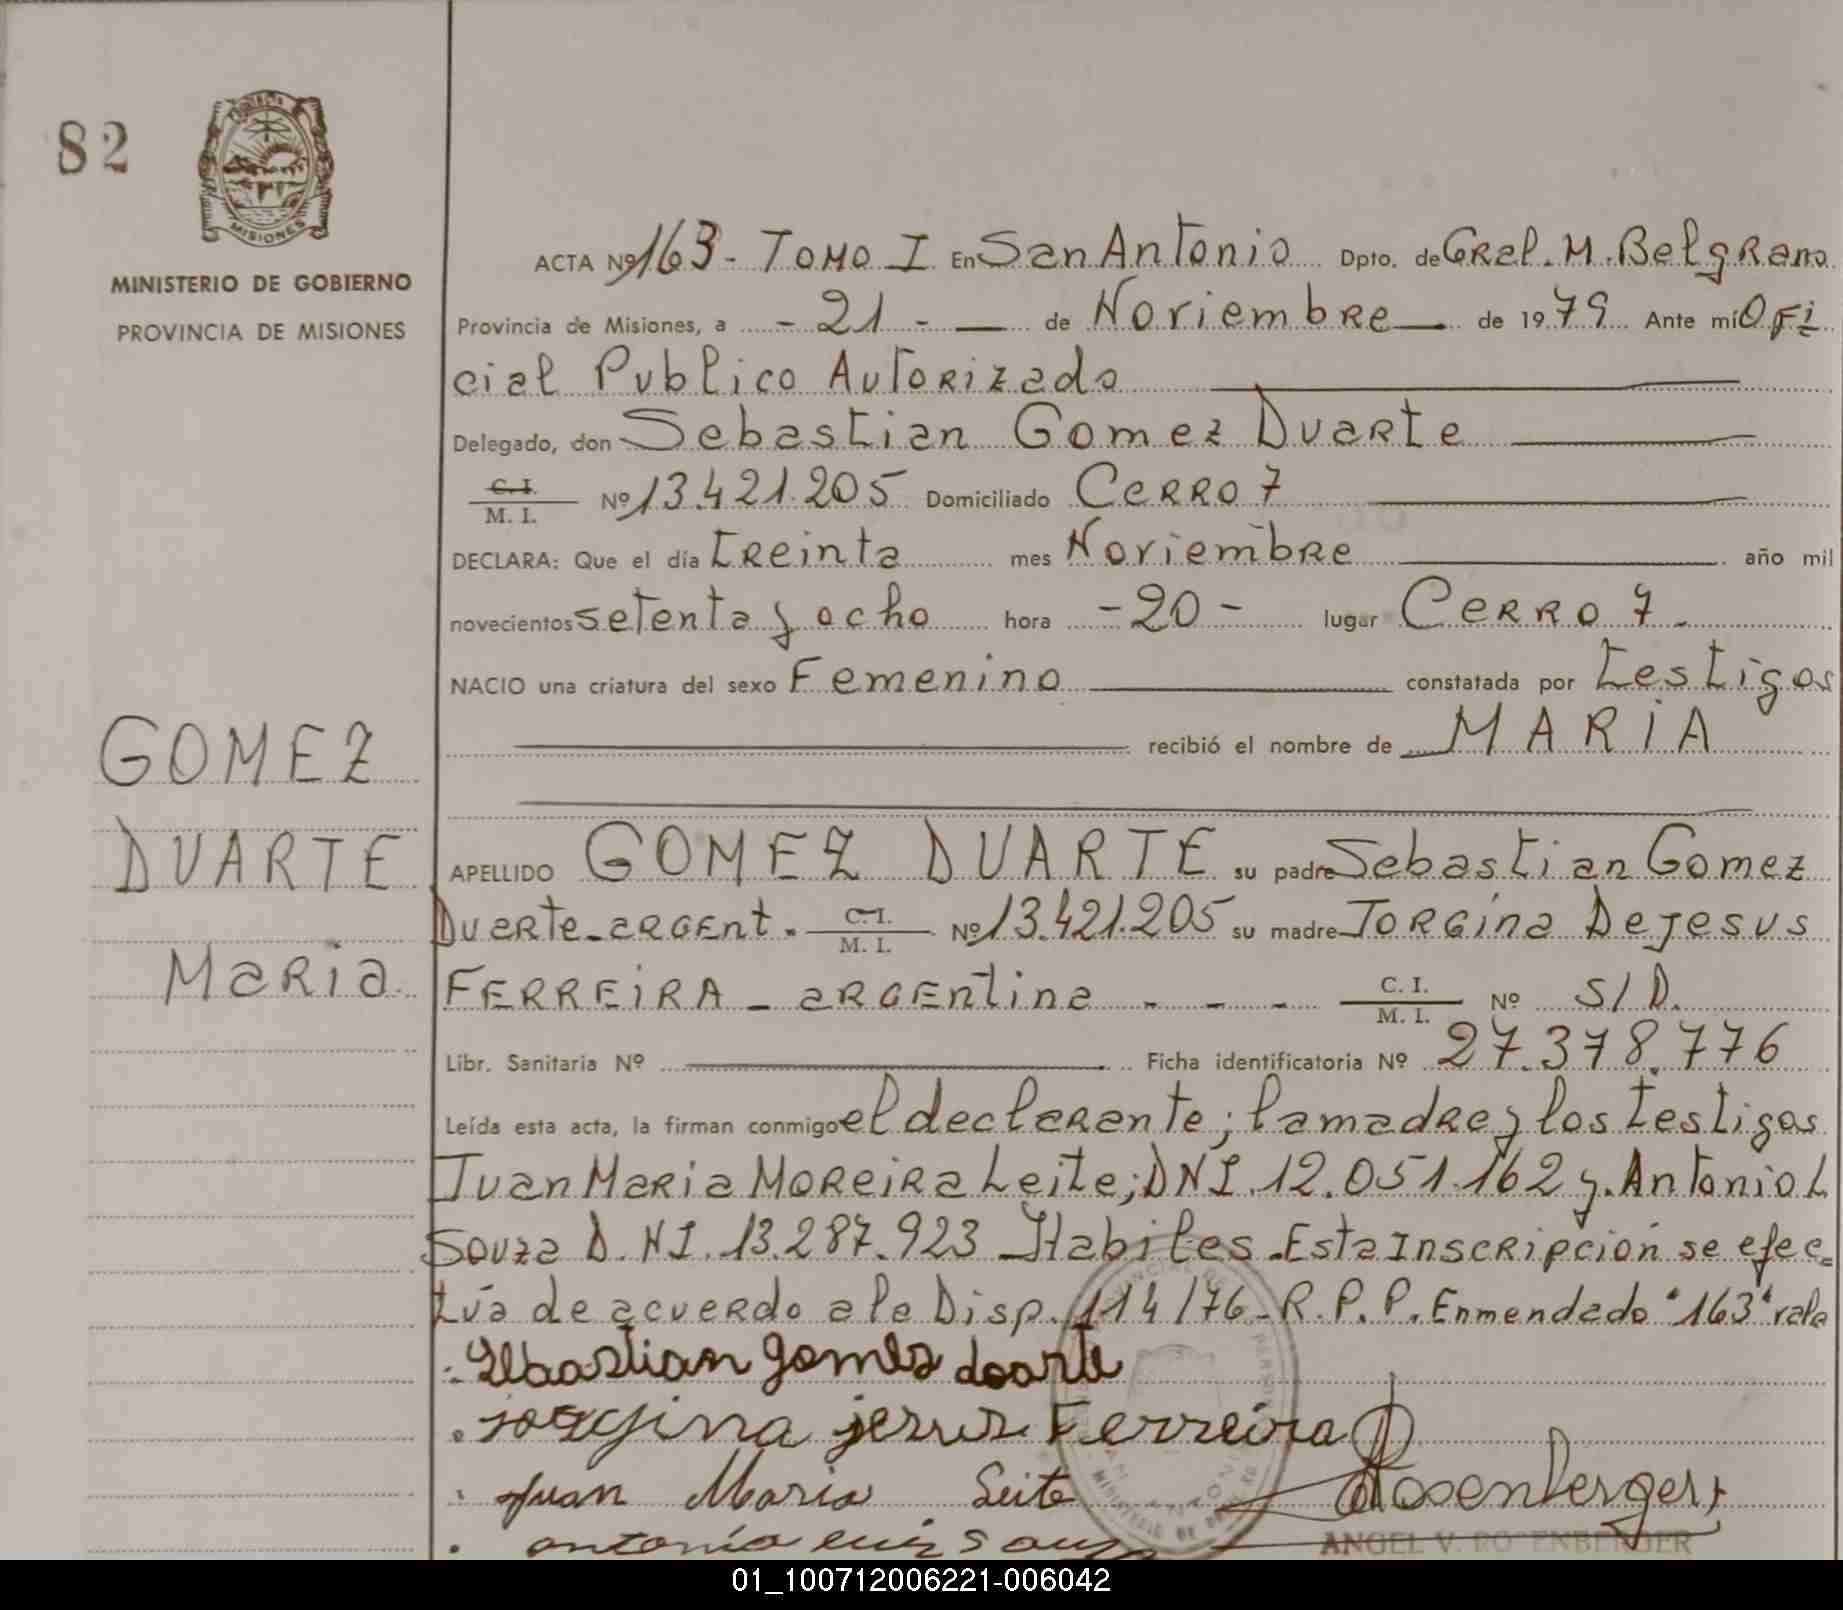 82
MISIONES
MINISTERIO DE GOBIERNO
PROVINCIA DE MISIONES
ACTA Nº 163 - TOMO I En San Antonio Dpto. de GRal. M. Belgrano
Provincia de Misiones, a - 21 - de Noviembre de 1979 Ante mí Ofi
cial Publico Autorizado
Delegado, don Sebastian Gomez Duarte
C.I. M. I. Nº 13.421.205 Domiciliado Cerro 7
DECLARA: Que el día treinta mes Noviembre año mil
novecientos setenta y ocho hora -20- lugar Cerro 7.
NACIO una criatura del sexo Femenino constatada por testigos
recibió el nombre de MARIA
GOMEZ
DUARTE
Maria
APELLIDO GOMEZ DUARTE su padre Sebastian Gomez
Duarte-argent. C.I. M. I. Nº 13.421.205 su madre Jorgina De jesus
FERREIRA - argentina - - - C. I. M. I. Nº S/D.
Libr. Sanitaria Nº Ficha identificatoria Nº 27.378.776
Leída esta acta, la firman conmigo el declarante; la madre y los testigos
Juan Maria Moreira Leite; DNI. 12.051.162 y. Antonio L
Souza D.NI. 13.287.923 Habiles. Esta Inscripción se efec-
túa de acuerdo a la Disp. 114/76-R.P.P. Enmendado "163" vale
Sebastian gomes doarte
jorgina jesus Ferreira
Juan Maria Leite
Rosenberger
antonio luis Souza
ANGEL V. ROSENBERGER
01_100712006221-006042